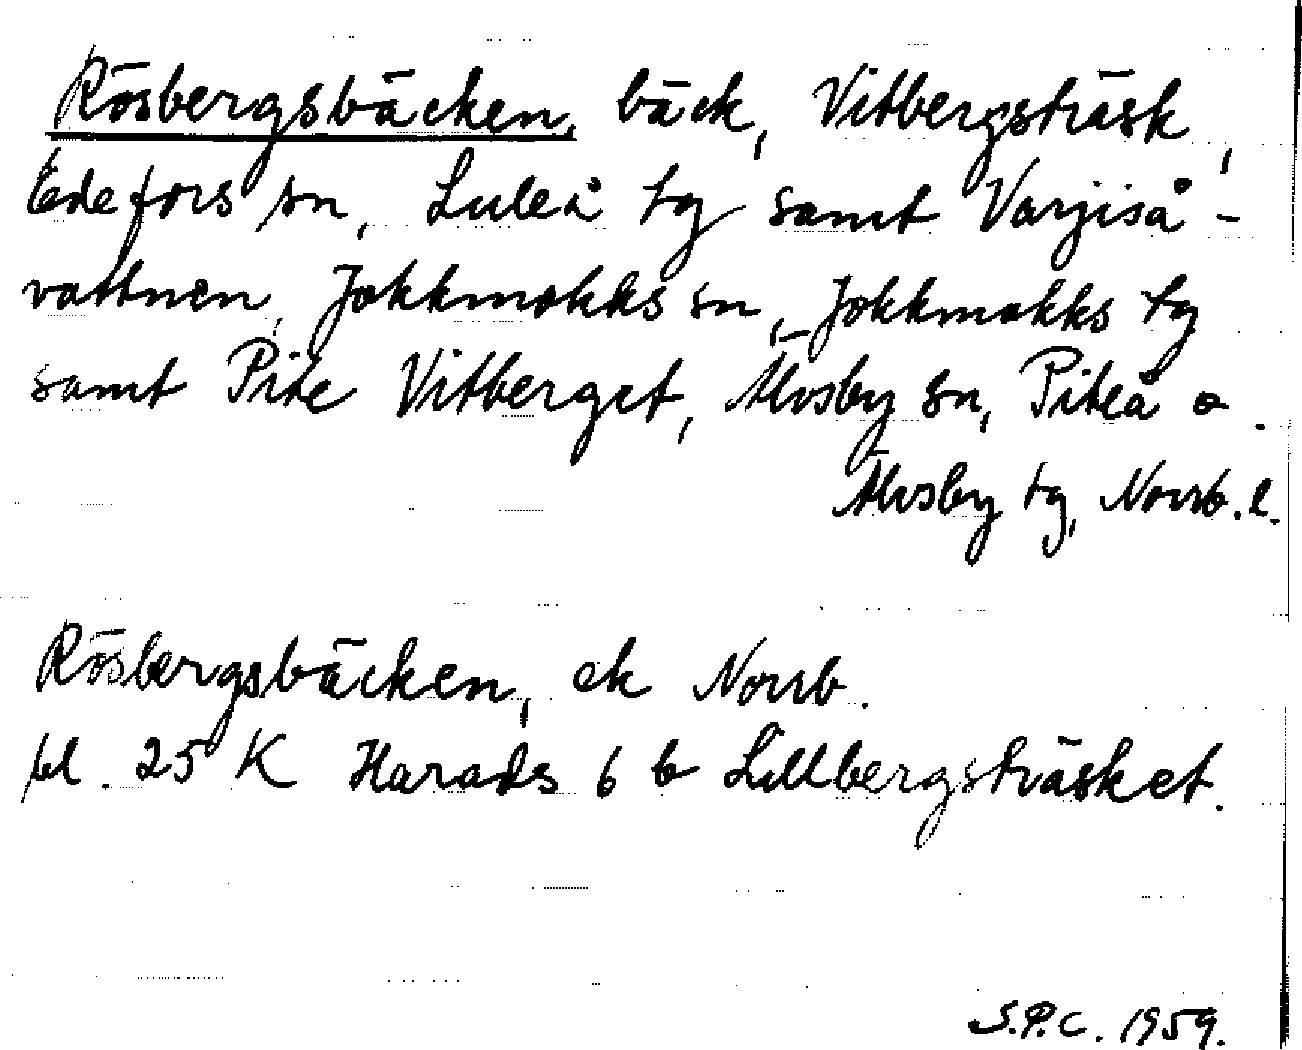 Rösbergsbäcken, bäck, Vitbergsträsk,
Edefors sn, Luleå tg samt Varjiså-
vattnen, Jokkmokks sn, Jokkmokks tg
samt Pite Vitberget, Älvsby sn, Piteå o.
Älvsby tg, Norrb. l.
Rösbergsbäcken, ek Norrb.
bl. 25 K Harads 6 b Lillbergsträsket.
S.P.C. 1959.